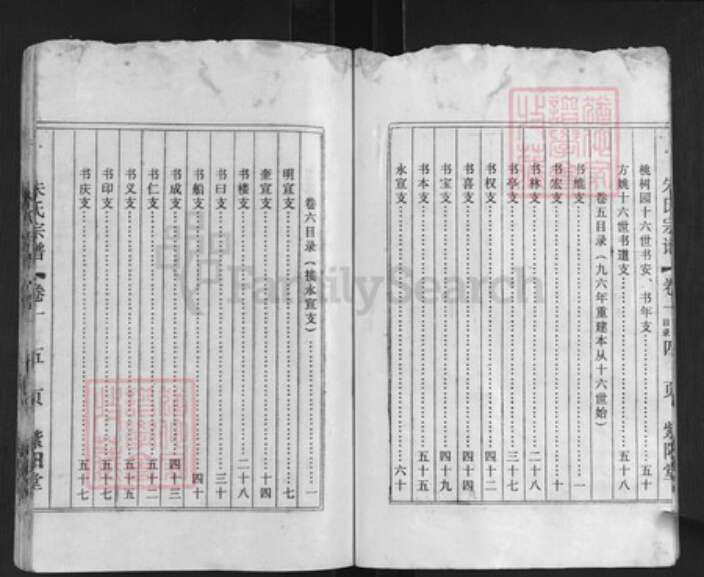 朱氏宗谱 卷一 目录 四页 紫阳堂
桃树园十六世书安、书年支……五十
方姚十六世书道支……五十八
卷五目录（九六年重建本从十六世始）
书维支……一
书宏支……十
书林支……二十八
书亭支……三十七
书权支……四十二
书喜支……四十四
书宝支……四十九
书本支……五十五
永宣支……六十
卷六目录（横永宣支）……一
明宣支……七
奎宣支……十四
书楼支……二十八
书曰支……三十
书船支……四十
书成支……四十三
书仁支……五十二
书义支……五十五
书印支……五十七
书庆支……五十七
朱氏宗谱 卷一 五页 紫阳堂
FamilySearch